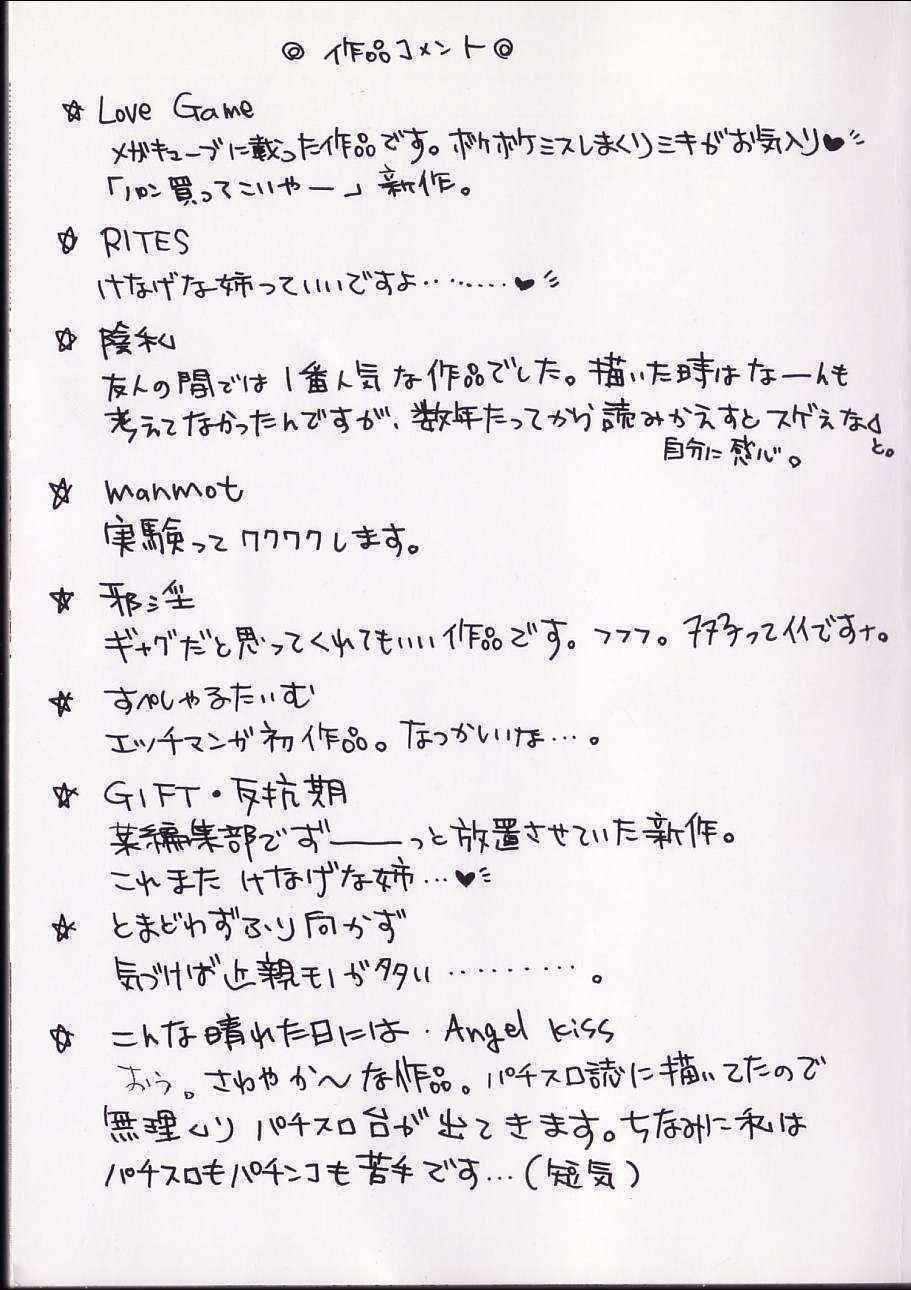 ◎ 作品コメント◎
☆ Love Game
メガキューブに載った作品です。ボケボケミスしまくりミキがお気入り♥
「パン買ってこいやー」新作。
☆ RITES
けなげな姉っていいですよ‥‥‥‥♥
☆ 陰私
友人の間では1番人気な作品でした。描いた時はなーんも
考えてなかったんですが、数年たってから読みかえすとスゲぇな
と。
自分に感心。
☆ manmot
実験ってワクワクします。
☆ 邪淫
ギャグだと思ってくれてもいい作品です。フフフ。フタナってイイですナ。
☆ すぺしゃるたいむ
エッチマンガ初作品。なつかいいな…。
☆ GIFT・反抗期
某編集部でずーーっと放置させていた新作。
これまた けなげな姉…♥
☆ とまどわずふり向かず
気づけば近親モノが多い‥‥‥‥‥。
☆ こんな晴れた日には・Angel kiss
おぅ。さわやか〜な作品。パチスロ誌に描いてたので
無理くりパチスロ台が出てきます。ちなみに私は
パチスロもパチンコも苦手です…(短気)